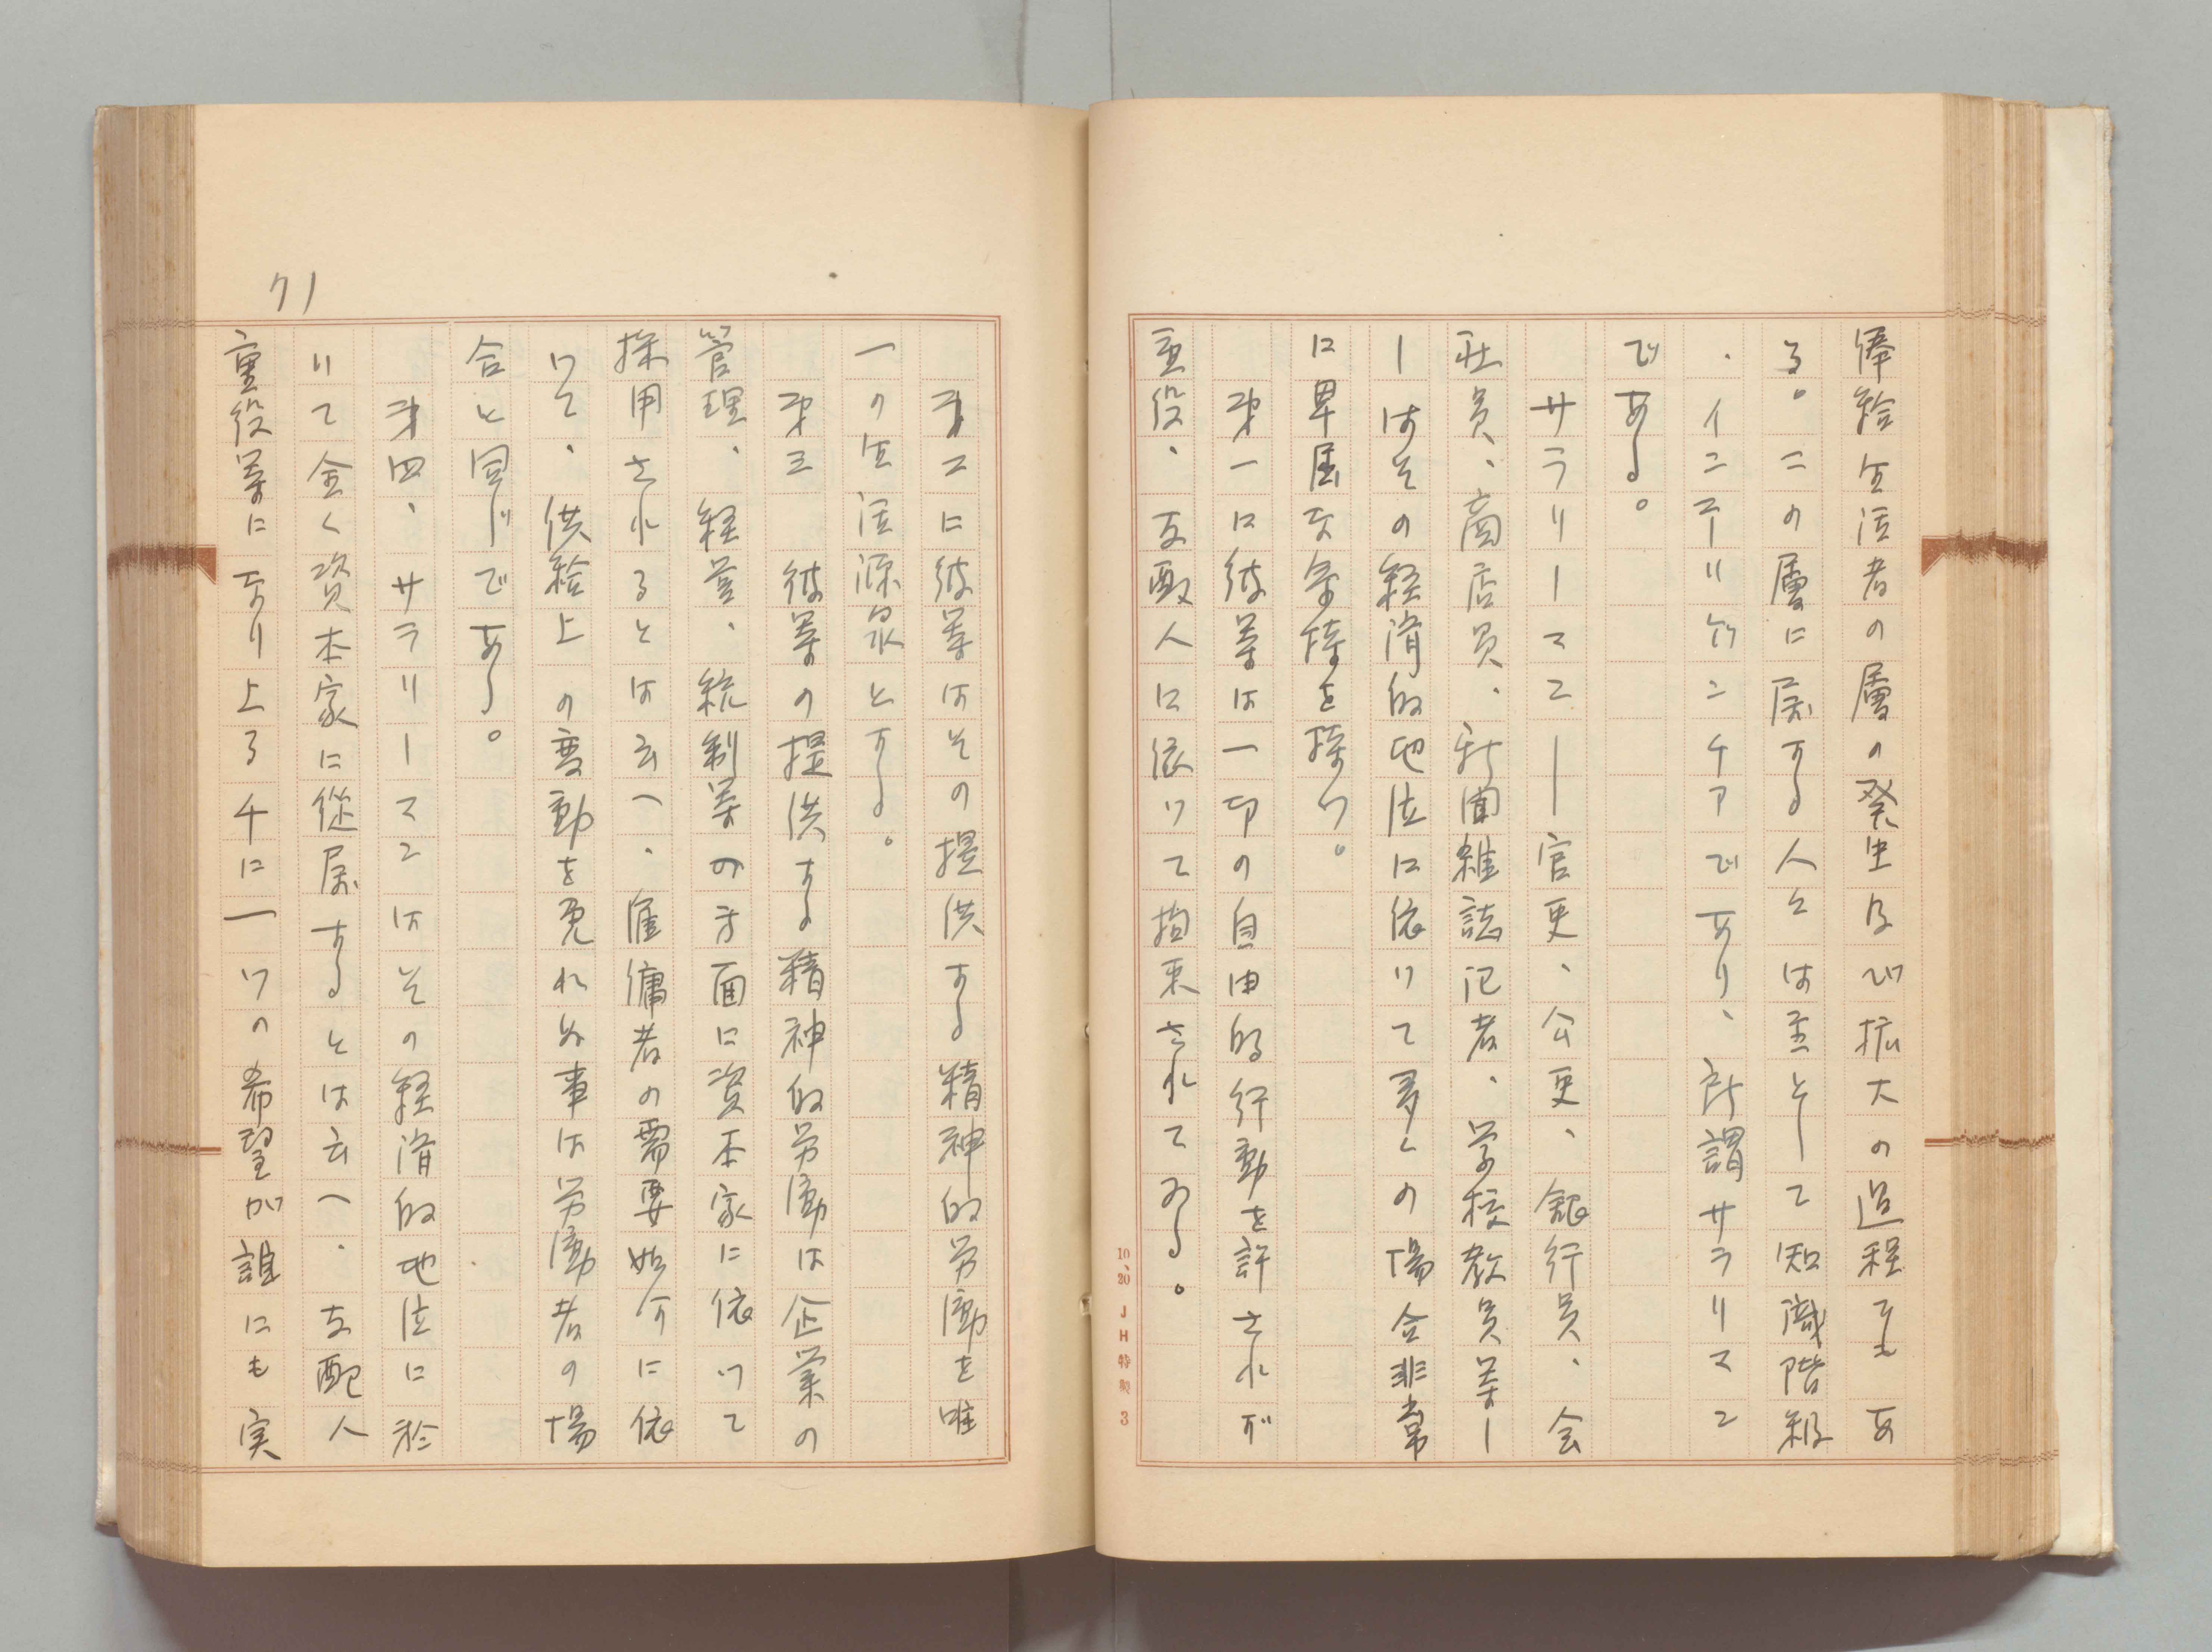 俸給生活者の層の発生及び拡大の過程でもあ
る。この層に属する人々は主として知識階級
・インテリゲンチアであり、所謂サラリマン
である。
サラリーマン―官吏、公吏、銀行員、会
社員、商店員、新聞雑誌記者、学校教員等―
―はその経済的地位に依りて多くの場合非常
に卑屈な気持を持つ。
第一に彼等は一切の自由的行動を許されず
重役、支配人に依つて拘束されてゐる。
10、20 JH特製 3
第二に彼等はその提供する精神的労働を唯
一の生活源泉とする。
第三 彼等の提供する精神的労働は企業の
管理、経営、統制等の方面に資本家に依つて
採用されるとは云へ、雇傭者の需要如何に依
つて、供給上の変動を免れぬ事は労働者の場
合と同じである。
第四、サラリーマンはその経済的地位に於
いて全く資本家に從属するとは云へ、支配人
重役等になり上るチに一つの希望が誰にも実
71